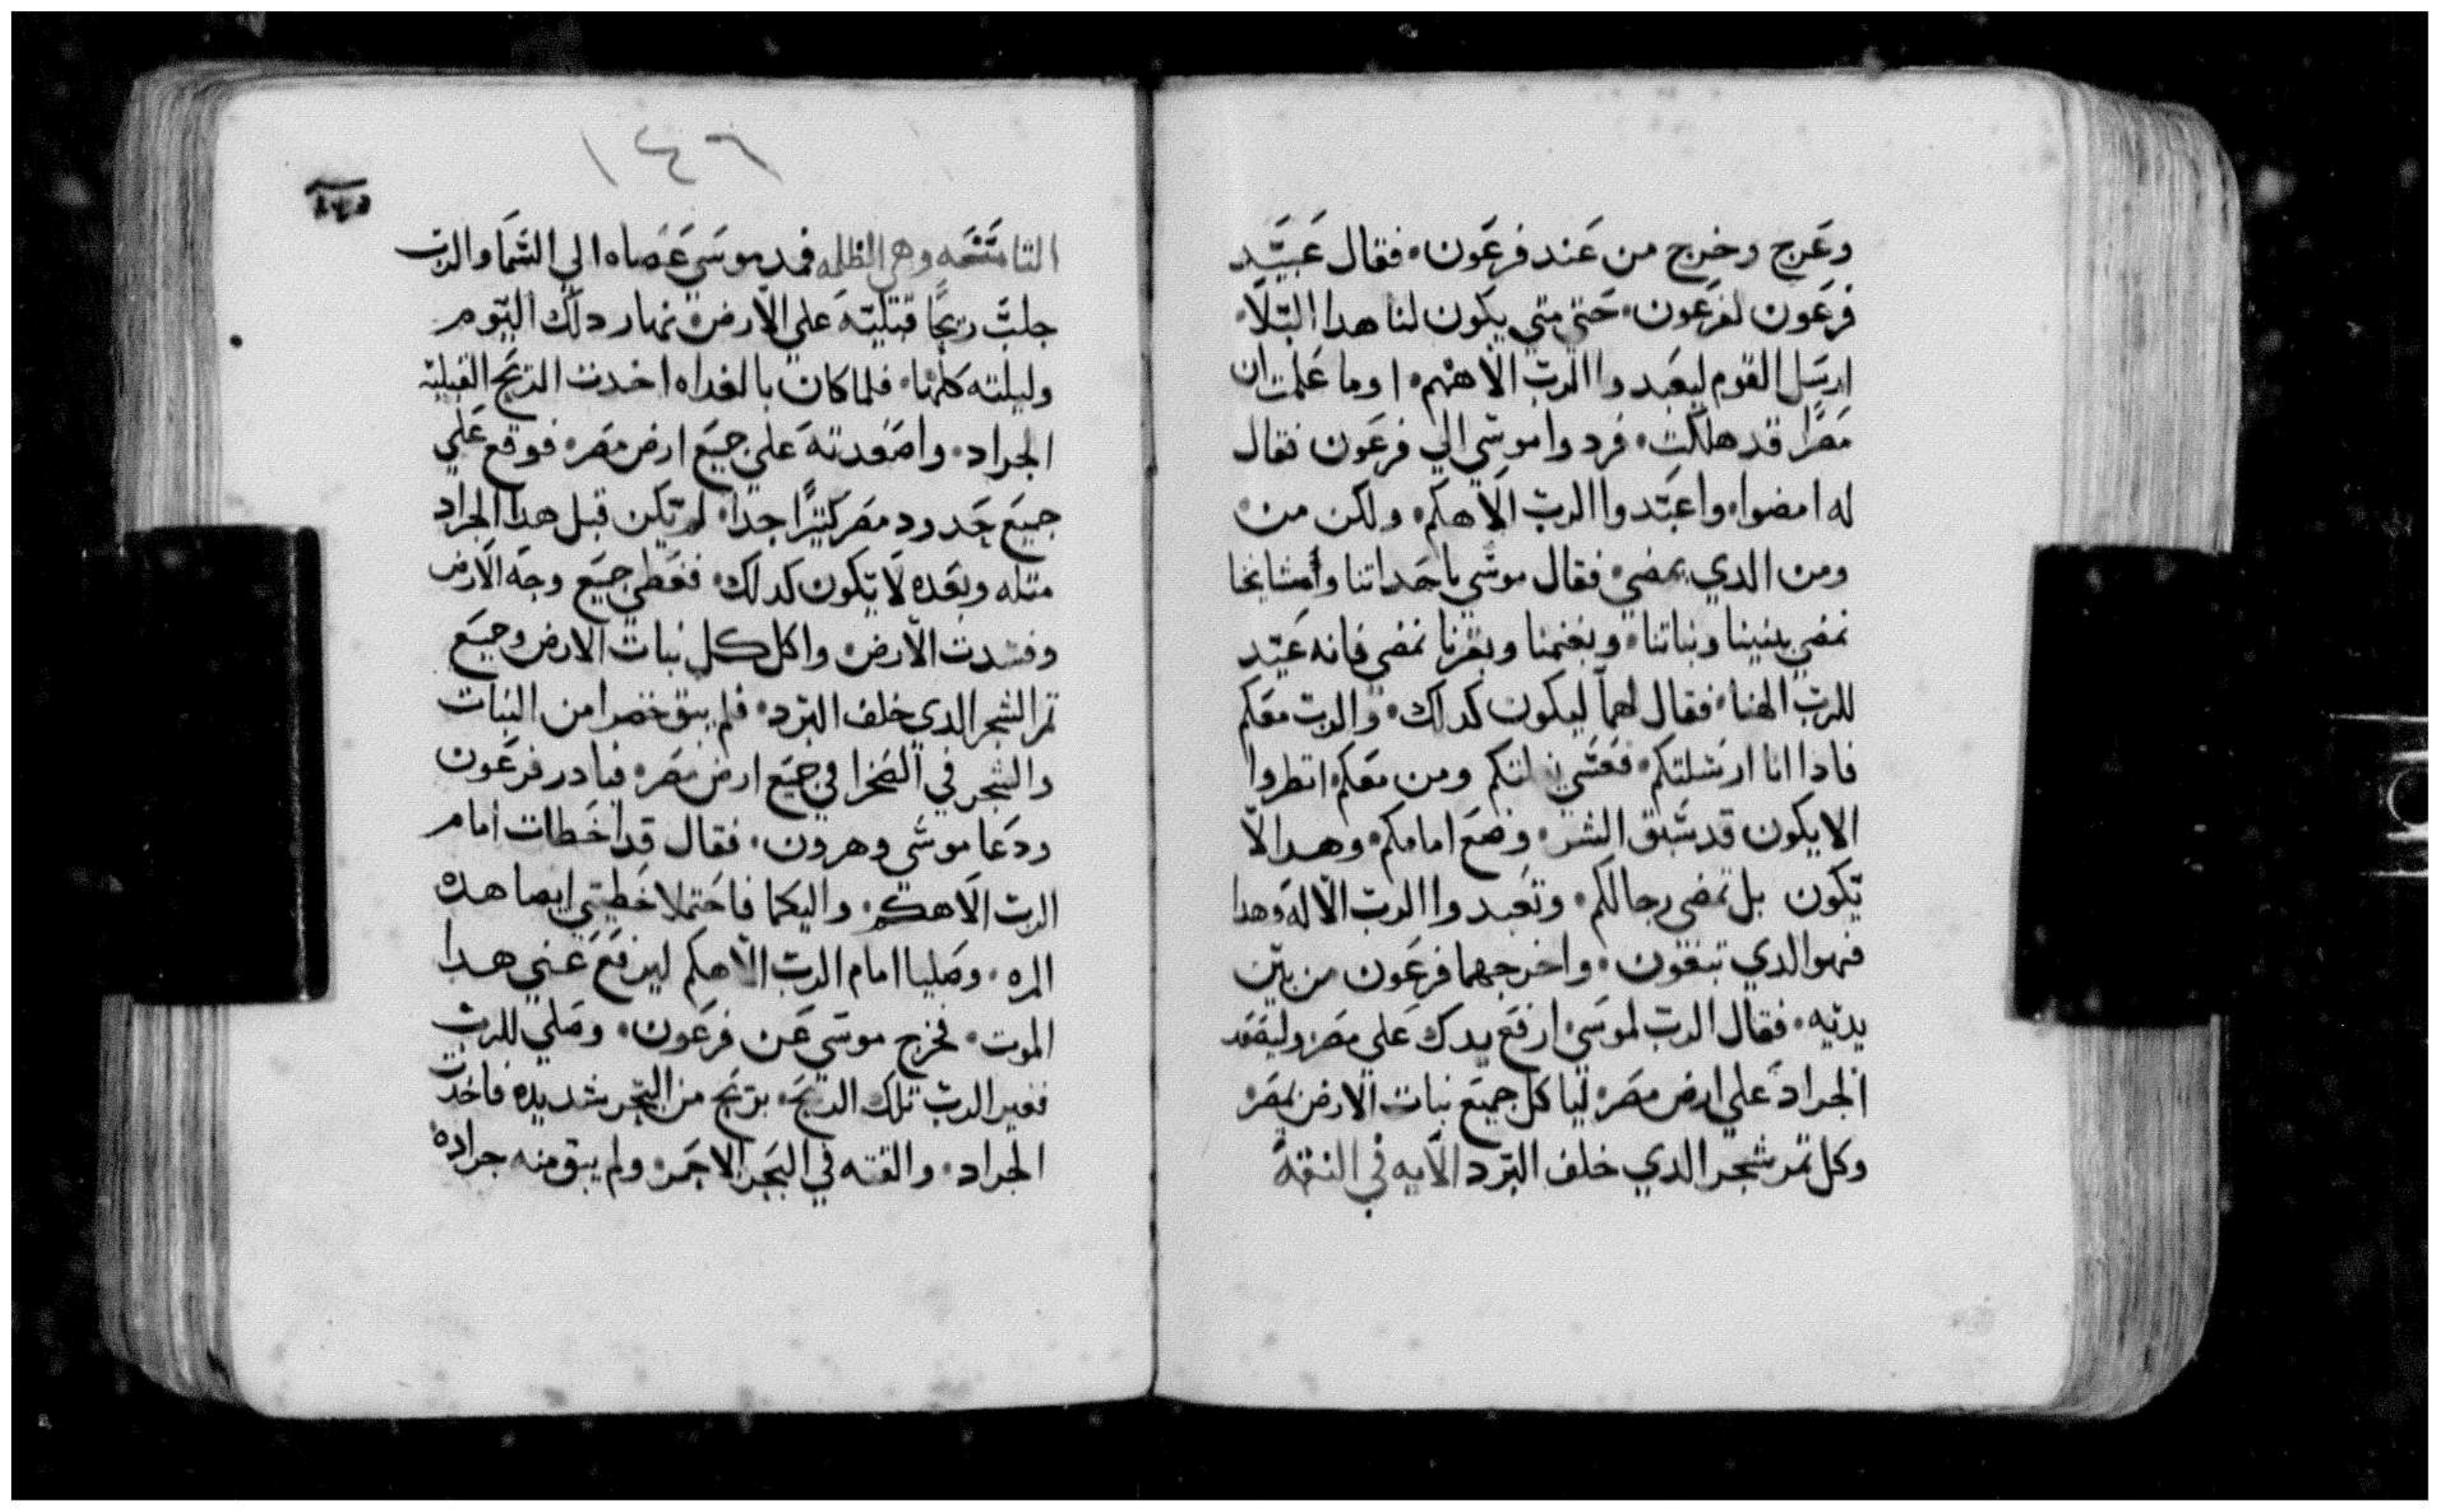 وعرج وخرج من عند فرعون. فقال عبيد
فرعون لفرعون. حتي متي يكون لنا هدا البلا.
ارسل القوم ليعبدوا الرب الاههم. اوما علمت ان
مصرا قد هلكت. فردوا موسي الي فرعون فقال
له امضوا. واعبدوا الرب الاهكم. ولكن من
ومن الدي يمضي. فقال موسي باحداتنا وامشايخنا
نمضي ببنينا وبناتنا. وبغنمنا وبقرنا نمضي فانه عيد
للرب الهنا. فقال لهما ليكون كدلك. والرب معكم
فادا انا ارسلتكم. فعسي لتكم ومن معكم انظروا
الا يكون قد سبق الشر. وضع امامكم. وهدا لا
يكون بل تمضي رجالكم. وتعبدوا الرب الاله وهدا
فهو الدي تبغون. واخرجهما فرعون من بين
يديه. فقال الرب لموسي ارفع يدك علي مصر وليصعد
الجراد علي ارض مصر. لياكل جميع نبات الارض بمصر
وكل تمر شجر الدي خلف البرد الايه في النقمة
١٤٦
التاسعه وهي الظلمه فمد موسي عصاه الي السما والرب
جلب ريحا قبليه علي الارض نهار دلك اليوم
وليلته كلها. فلما كان بالغداه اخدت الريح القبليه
الجراد. واصعدته علي جميع ارض مصر. فوقع علي
جميع حدود مصر كتيرا جدا. لم تكن قبل هدا الجراد
متله وبعده لا يكون كدلك. فغطي جميع وجه الارض
وفسدت الارض. واكل كل نبات الارض وجميع
تمر الشجر الدي خلف البرد. فلم يبق خضرا من النبات
والشجر في الصخرا في جميع ارض مصر. فبادر فرعون
ودعا موسي وهرون. فقال قد اخطات امام
الرب الاهكم. واليكما فاحتملا خطيتي ايضا هده
المره. وصليا امام الرب الاهكم ليرفع عني هدا
الموت. فخرج موسي عن فرعون. وصلي للرب
فغير الرب تلك الريح. بريح من البحر شديده فاخدت
الجراد. والقته في البحر الاحمر. ولم يبق منه جراده